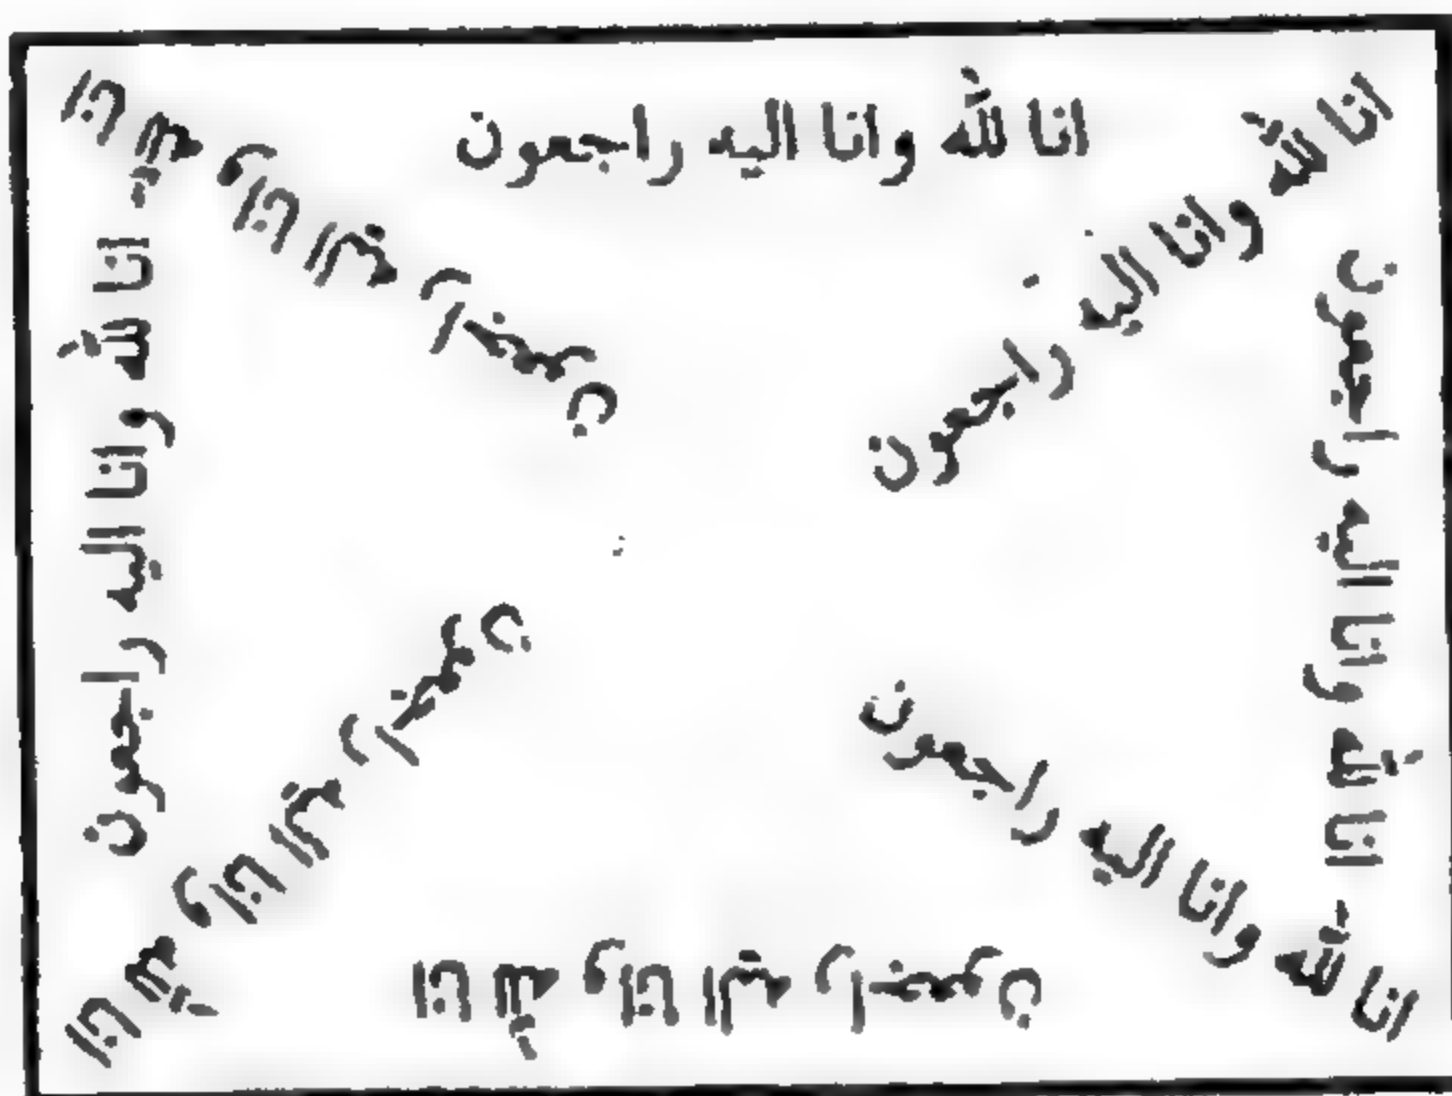 انا لله وانا اليه راجعون
انا لله وانا اليه راجعون
انا لله وانا اليه راجعون
انا لله وانا اليه راجعون
انا لله وانا اليه راجعون
انا لله وانا اليه راجعون
انا لله وانا اليه راجعون
انا لله وانا اليه راجعون